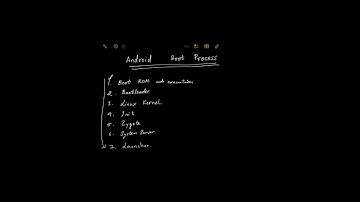 Android Boot Process
1. Boot ROM code execution
2. Bootloader
3. Linux Kernel
4. Init
5. Zygote
6. System Server
7. Launcher.